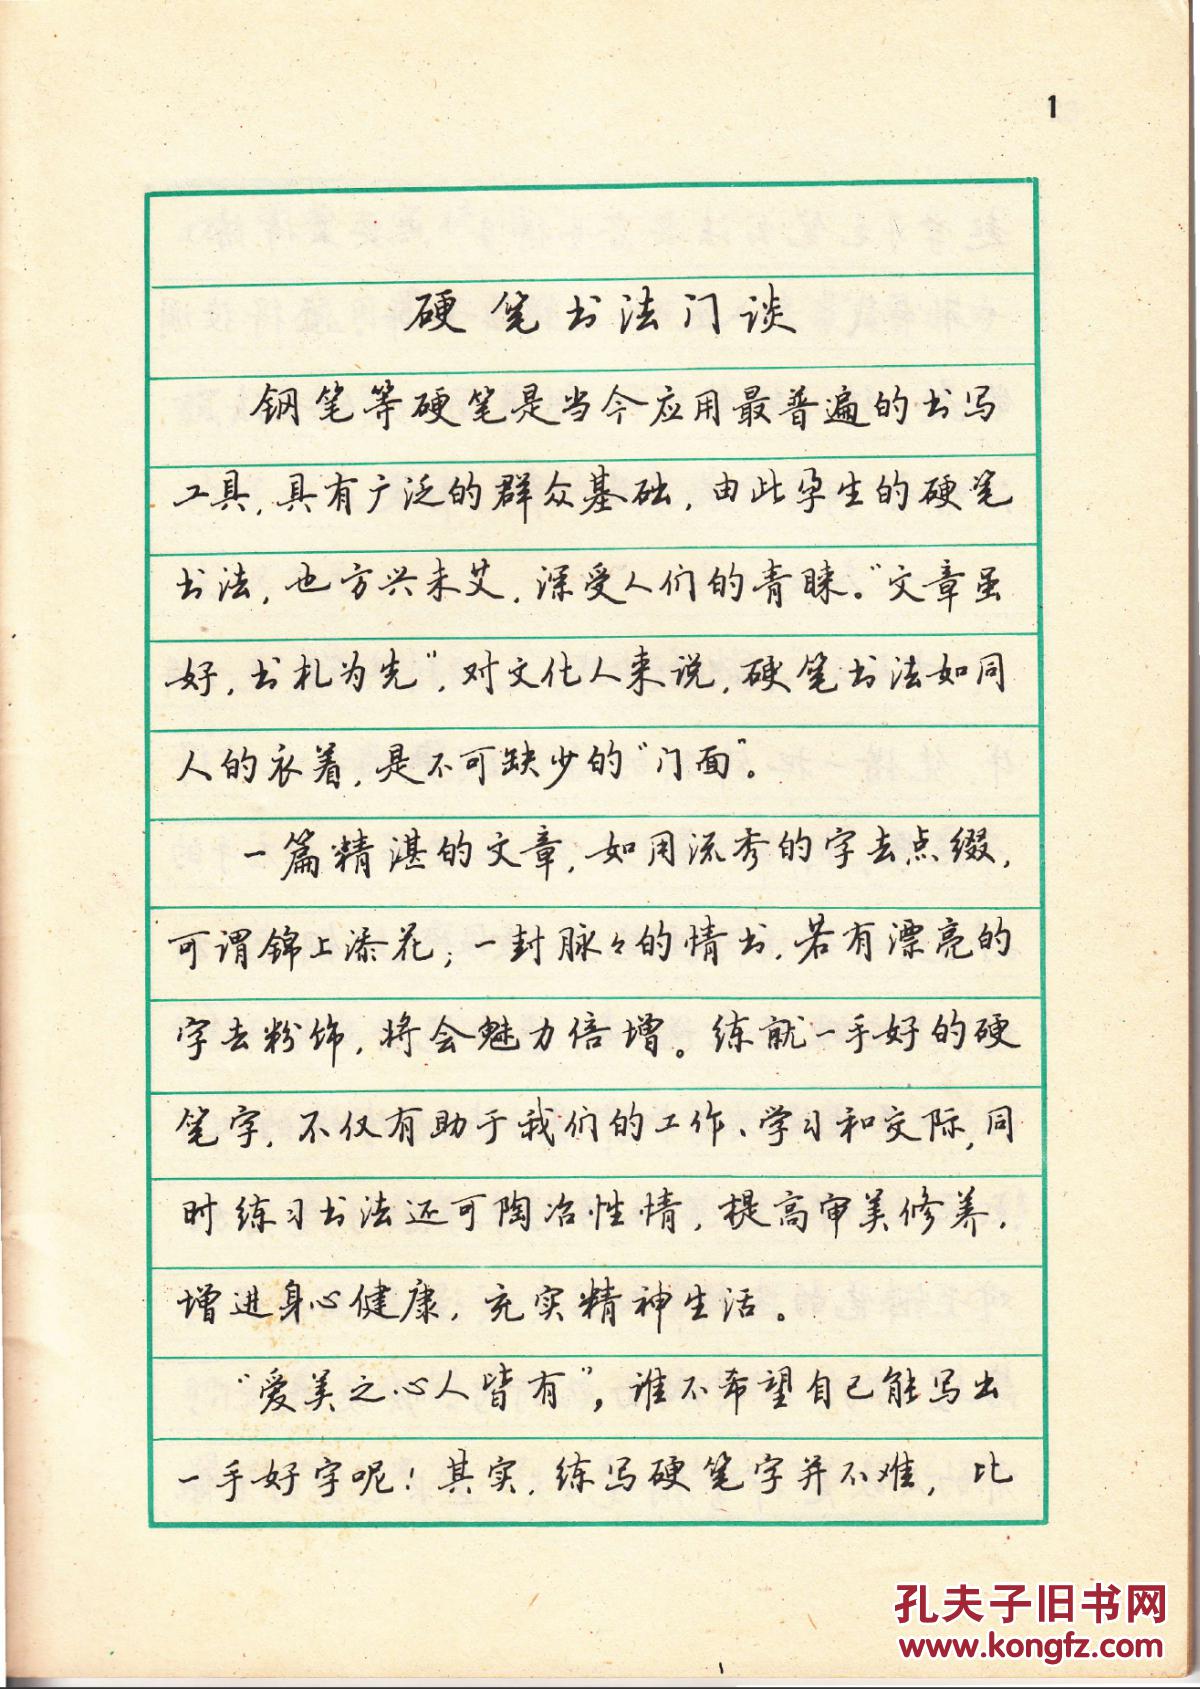 1
硬笔书法门谈
钢笔等硬笔是当今应用最普遍的书写
工具，具有广泛的群众基础，由此孕生的硬笔
书法，也方兴未艾，深受人们的青睐。“文章虽
好，书札为先”，对文化人来说，硬笔书法如同
人的衣着，是不可缺少的“门面”。
一篇精湛的文章，如用流秀的字去点缀，
可谓锦上添花；一封脉々的情书，若有漂亮的
字去粉饰，将会魅力倍增。练就一手好的硬
笔字，不仅有助于我们的工作、学习和交际，同
时练习书法还可陶冶性情，提高审美修养，
增进身心健康，充实精神生活。
“爱美之心人皆有”，谁不希望自己能写出
一手好字呢！其实，练写硬笔字并不难，比
孔夫子旧书网
www.kongfz.com